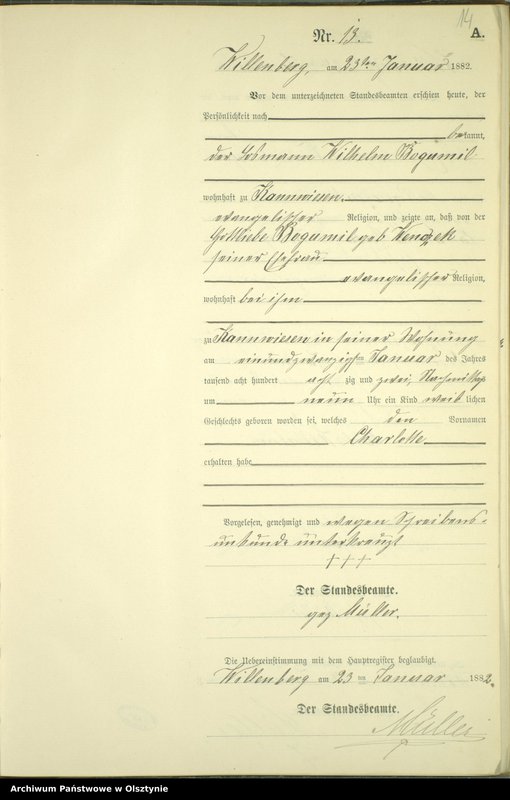 14
Nr. 13. A.
Willenberg, am 23ten Januar 1882.
Vor dem unterzeichneten Standesbeamten erschien heute, der
Persönlichkeit nach
bekannt,
der Losmann Wilhelm Bogumil
wohnhaft zu Kannwiesen,
evangelischer Religion, und zeigte an, daß von der
Gottliebe Bogumil geb
seiner Ehefrau
evangelischer Religion,
wohnhaft bei ihm
zu Kannwiesen in seiner Wohnung
am einundzwanzigsten Januar des Jahres
tausend acht hundert acht zig und zwei, Nachmittags
um neun Uhr ein Kind weib lichen
Geschlechts geboren worden sei, welches den Vornamen
Charlotte
erhalten habe
Vorgelesen, genehmigt und wegen Schreibens-
unkunde unterkreuzt
+++
Der Standesbeamte.
gez Müller.
Die Uebereinstimmung mit dem Hauptregister beglaubigt.
Willenberg am 23 ten Januar 1882.
Der Standesbeamte.
Müller
Archiwum Państwowe w Olsztynie